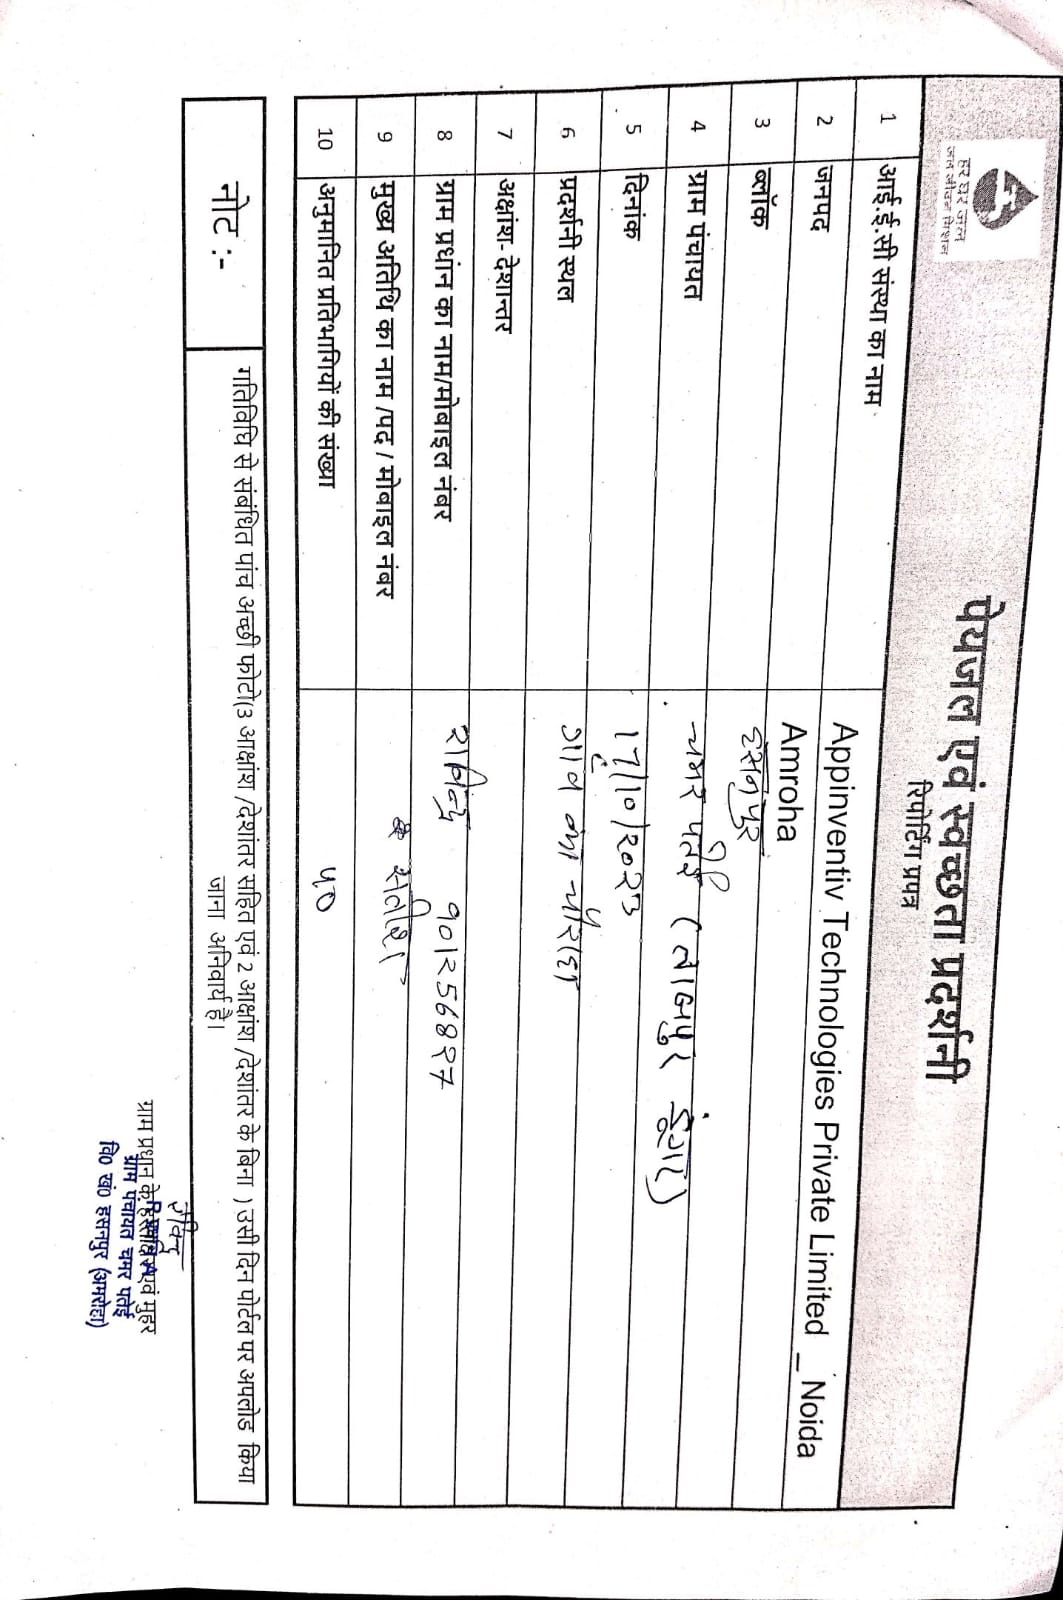 हर घर जल
जल जीवन मिशन
पेयजल एवं स्वच्छता प्रदर्शनी
रिपोर्टिंग प्रपत्र
1 आई.ई.सी संस्था का नाम Appinventiv Technologies Private Limited _ Noida
2 जनपद Amroha
3 ब्लॉक हसनपुर
4 ग्राम पंचायत चमर पतई (लालपुर डूंगर)
5 दिनांक 17/10/२०२३
6 प्रदर्शनी स्थल गाव का चौराहा
7 अक्षांश- देशान्तर
8 ग्राम प्रधांन का नाम/मोबाइल नंबर
9 मुख्य अतिथि का नाम /पद / मोबाइल नंबर सतीश
10 अनुमानित प्रतिभागियों की संख्या ५०
नोट :-
गतिविधि से संबंधित पांच अच्छी फोटो(3 आक्षांश /देशांतर सहित एवं 2 आक्षांश /देशांतर के बिना ) उसी दिन पोर्टल पर अपलोड किया
जाना अनिवार्य है।
ग्राम प्रधान के हस्ताक्षर एवं मुहर
ग्राम पंचायत चमर पतई
वि० खं० हसनपुर (अमरोहा)